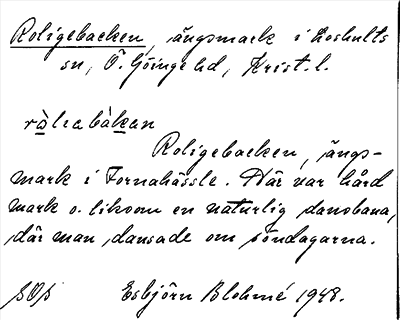 Roligebacken, ängsmark i Loshults
sn, Ö. Göinge hd, Krist. l.
Roligebacken, ängs-
mark i Tornahässle. Där var hård
mark o. liksom en naturlig dansbana,
där man dansade om söndagarna.
Esbjörn Blohmé 1948.